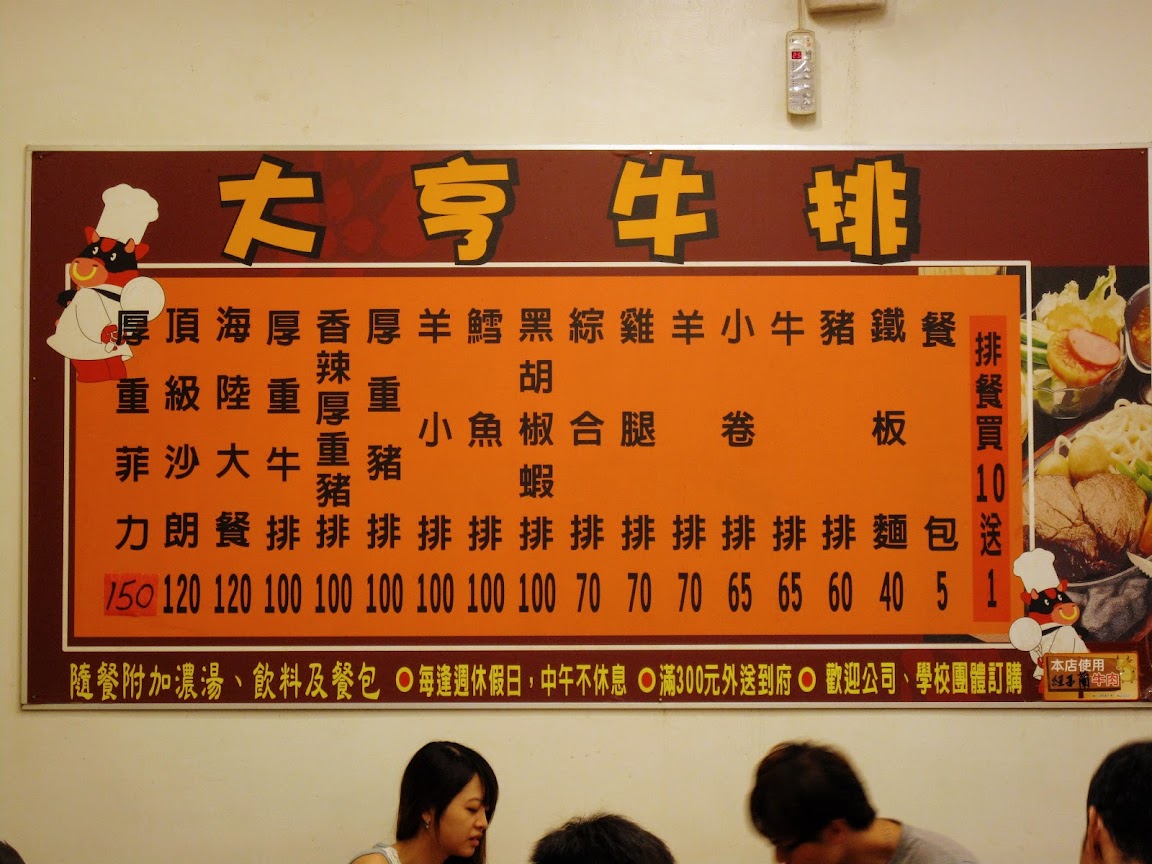 大亨牛排
厚重菲力 150
頂級沙朗 120
海陸大餐 120
厚重牛排 100
香辣厚重豬排 100
厚重豬排 100
羊小排 100
鱈魚排 100
黑胡椒蝦排 100
綜合排 70
雞腿排 70
羊排 70
小卷排 65
牛排 65
豬排 60
鐵板麵 40
餐包 5
排餐買10送1
隨餐附加濃湯、飲料及餐包
每逢週休假日,中午不休息
滿300元外送到府
歡迎公司、學校團體訂購
本店使用
牛肉